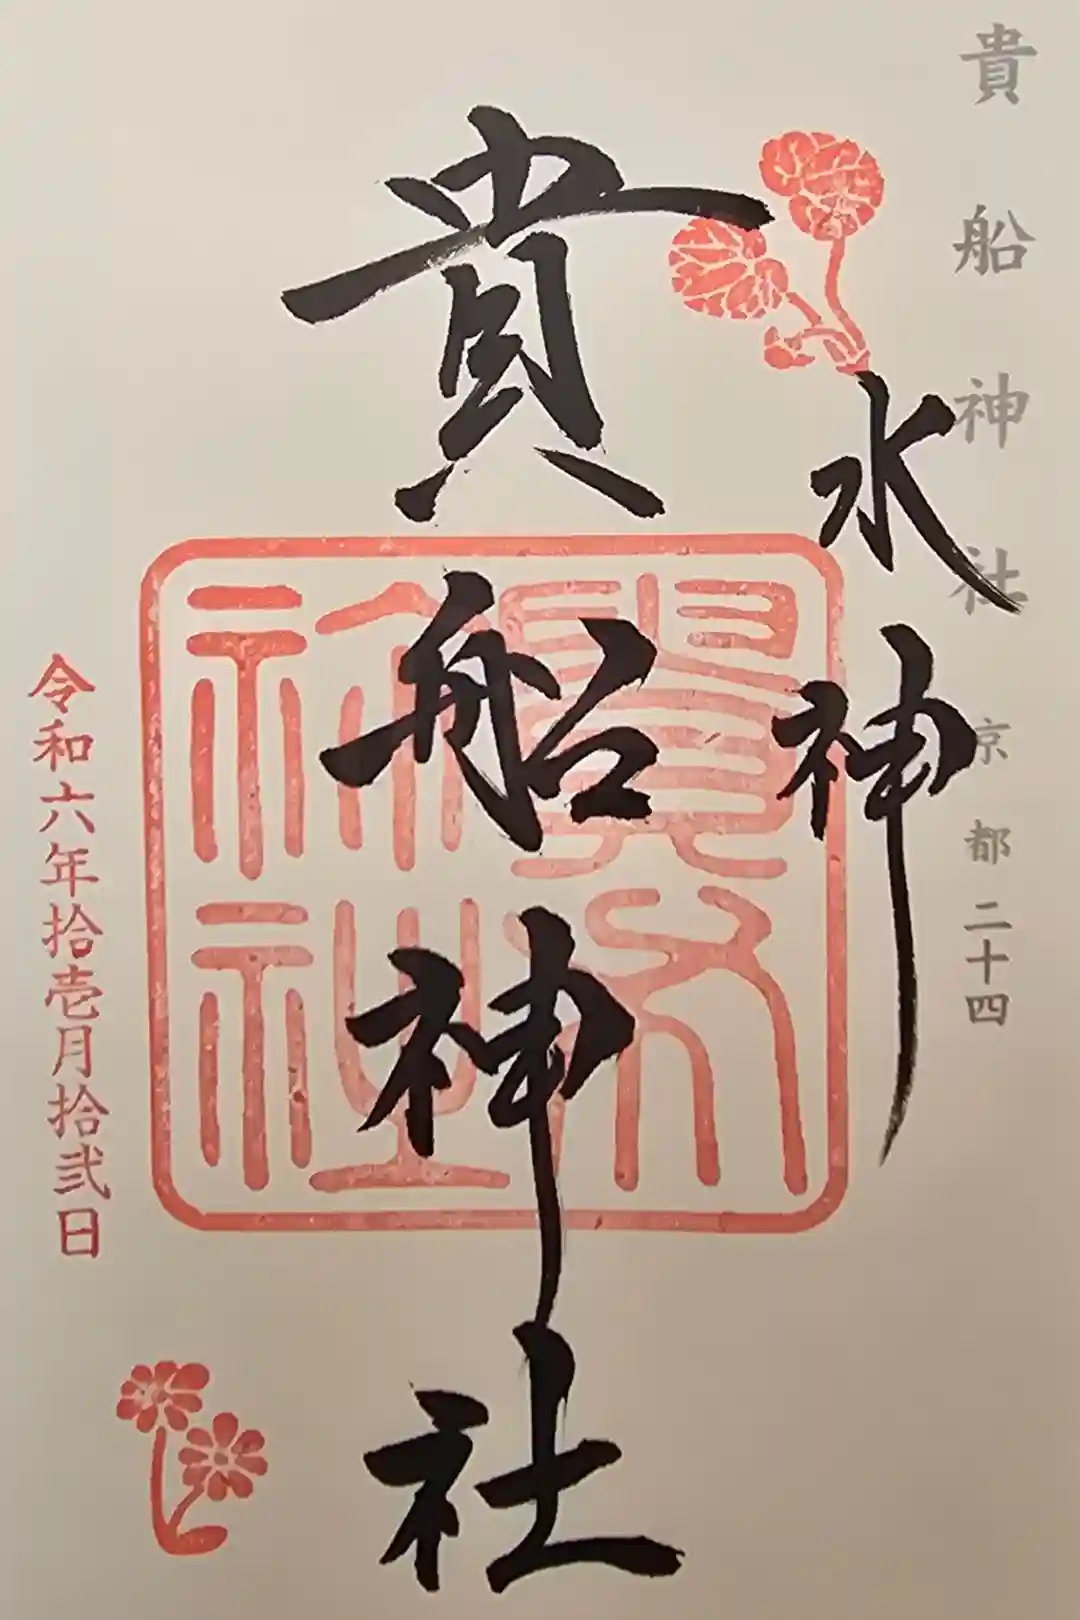 貴船神社 京都二十四
水神
貴船神社
貴布祢社
令和六年拾壱月拾弐日